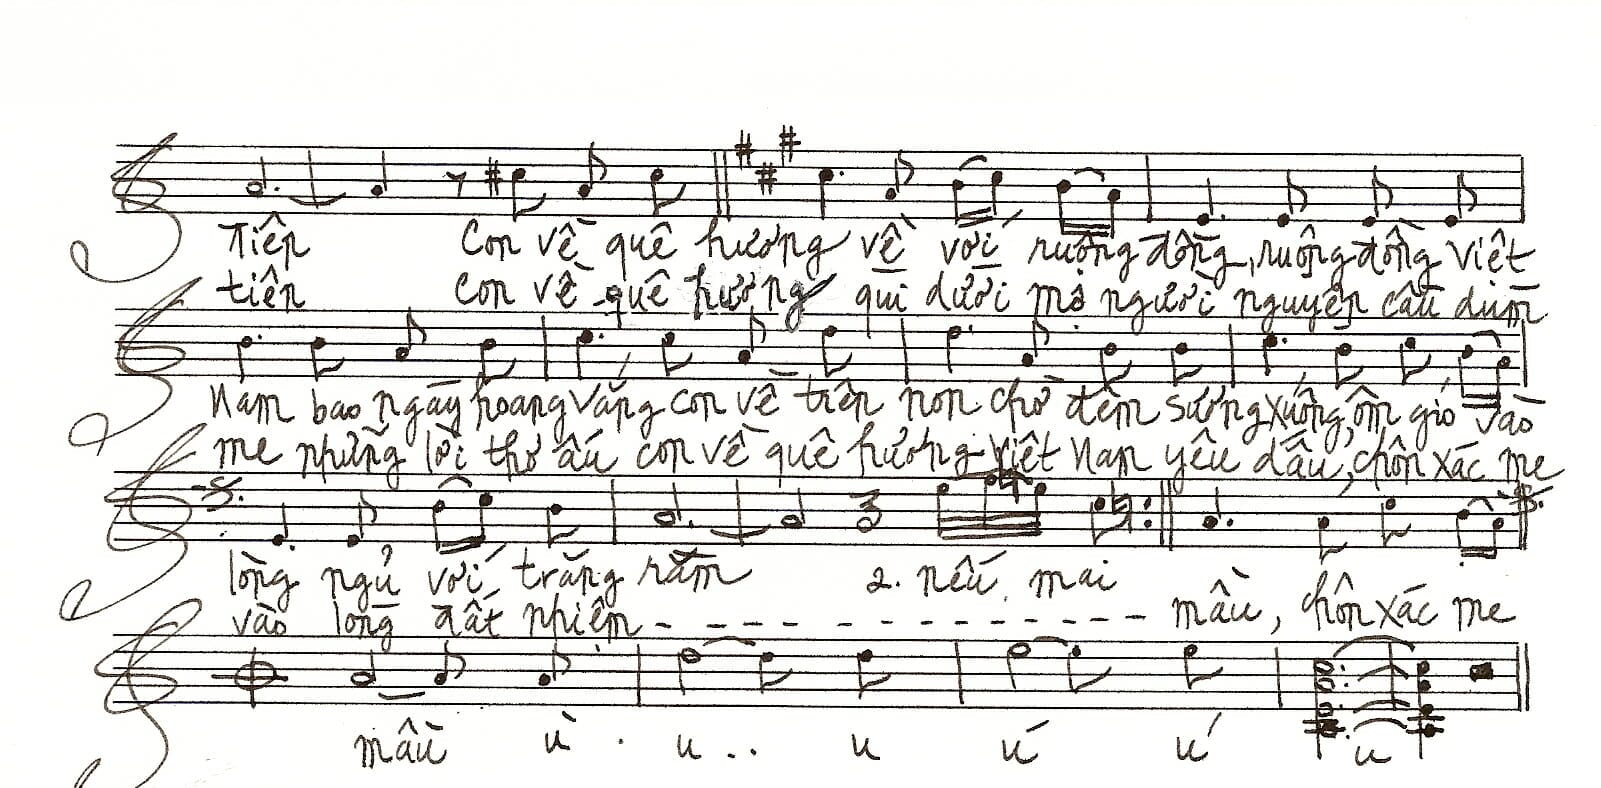 Tiên Con về quê hương về với ruộng đồng, ruộng đồng Việt
tiên Con về quê hương quì dưới mộ người nguyện cầu dùm
Nam bao ngày hoang vắng con về trên non chờ đêm sương xuống, ôm gió vào
mẹ những lời thơ ấu con về quê hương Việt Nam yêu dấu, chôn xác mẹ
lòng ngủ với trăng rằm 2. nếu mai
vào lòng đất nhiệm - - - - - - - - - - - - - mầu, chôn xác mẹ
mầu ù . u . . u ú ú u